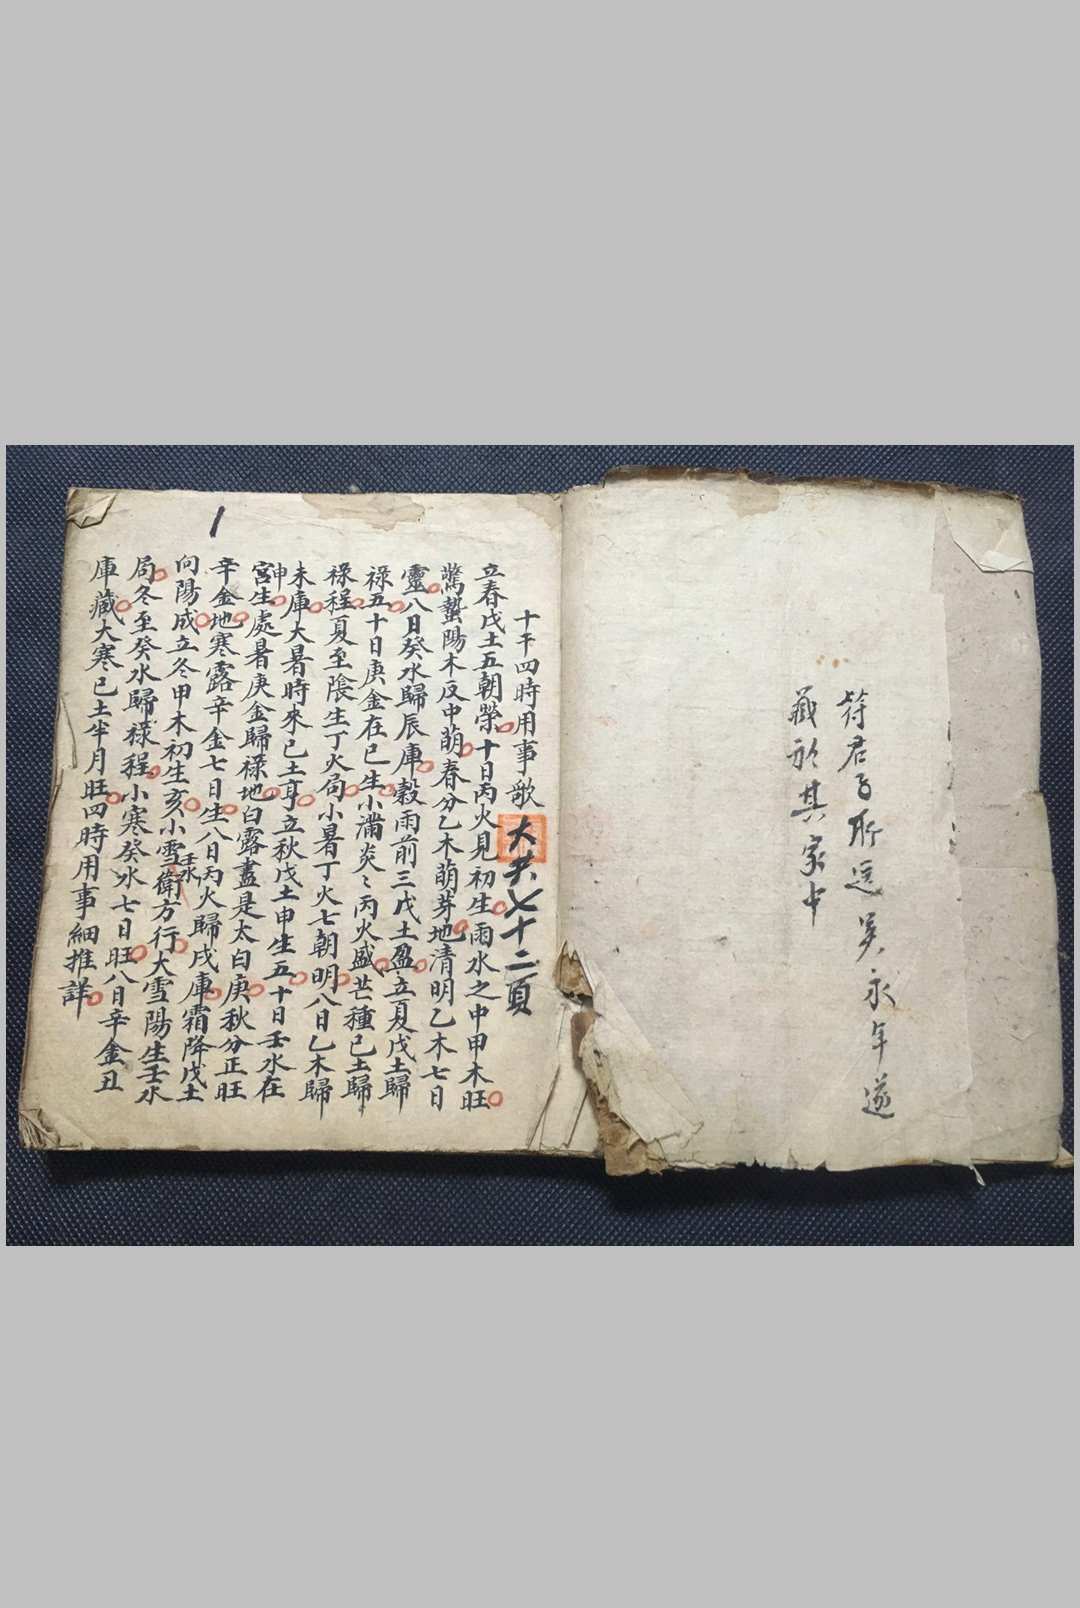 符君子所送吳永年遂
藏於其家中
1
十干四時用事歌
大共七十二頁
立春戊土五朝榮十日丙火見初生雨水之中甲木旺
驚蟄陽木反中萌春分乙木萌芽地清明乙木七日
靈八日癸水歸辰庫穀雨前三戊土盈立夏戊土歸
祿五十日庚金在巳生小滿炎〻丙火盛芒種己土歸
祿程夏至陰生丁火局小暑丁火七朝明八日乙木歸
未庫大暑時來己土亨立秋戊土申生五十日壬水在
申宮生處暑庚金歸祿地白露盡是太白庚秋分正旺
辛金地寒露辛金七日生八日丙火歸戌庫霜降戊土
向陽成立冬甲木初生亥小雪壬水衛方行大雪陽生壬水
局冬至癸水歸祿程小寒癸水七日旺八日辛金丑
庫藏大寒己土半月旺四時用事細推詳